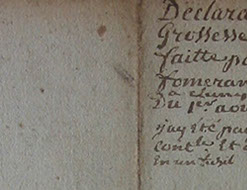 Déclara
Grossesse
faitte pa
fomeran
Du 1er aou
j'ay été pa
contle et